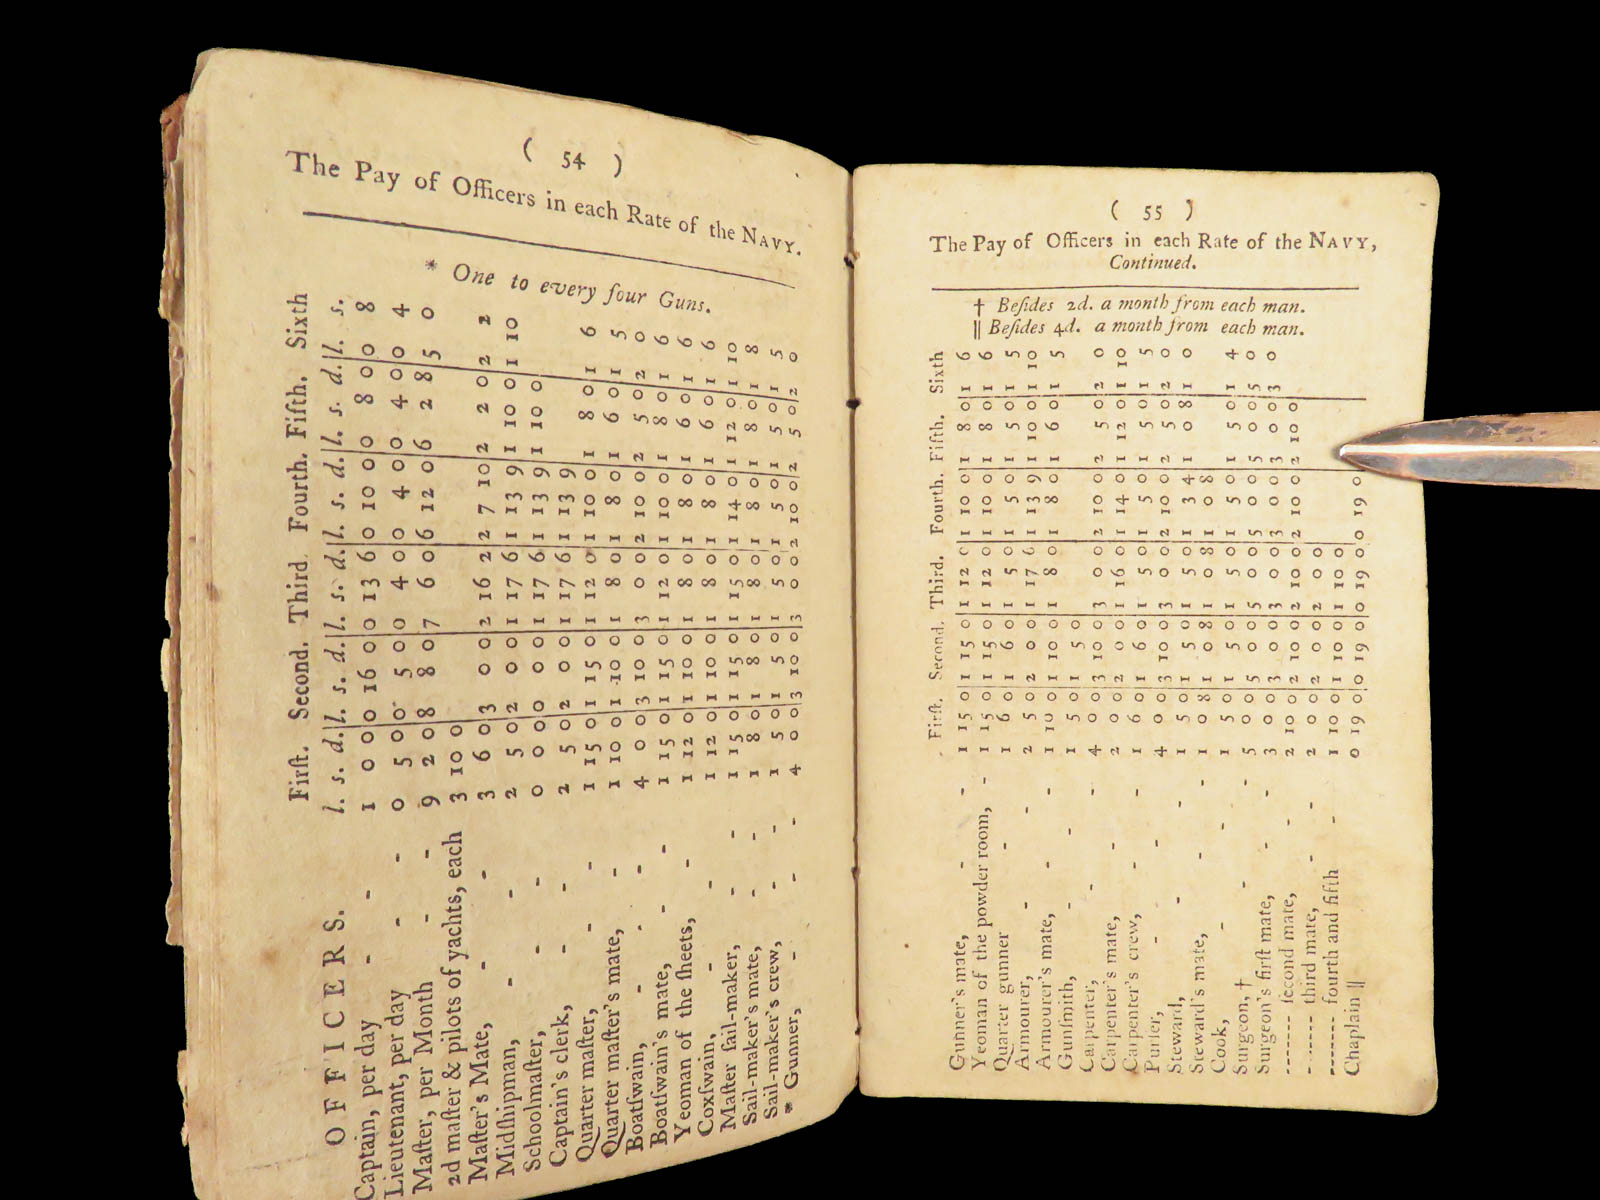 ( 54 )
The Pay of Officers in each Rate of the NAVY.
* One to every four Guns.
OFFICERS. First. Second. Third Fourth. Fifth. Sixth
l. s. d. l. s. d. l. s. d. l. s. d. l. s. d. l. s.
Captain, per day - - 1 0 0 0 16 0 0 13 6 0 10 0 0 8 0 0 8
Lieutenant, per day - - 0 5 0 0 5 0 0 4 0 0 4 0 0 4 0 0 4
Maſter, per Month - - 9 2 0 8 8 0 7 6 0 6 12 0 6 2 8 5 0
2d maſter & pilots of yachts, each 3 10 0
Maſter's Mate, - - 3 6 0 3 0 0 2 16 2 2 7 10 2 2 0 2 2
Midſhipman, - - 2 5 0 2 0 0 1 17 6 1 13 9 1 10 0 1 10
Schoolmaſter, - - 0 0 0 0 0 0 1 17 6 1 13 9 1 10 0
Captain's clerk, - - 2 5 0 2 0 0 1 17 6 1 13 9
Quarter maſter, - - 1 15 0 1 15 0 1 12 0 1 10 0 1 8 0 1 6
Quarter maſter's mate, - 1 10 0 1 10 0 1 8 0 1 8 0 1 6 0 1 5
Boatſwain, - - - 4 0 0 3 10 0 3 0 0 2 10 0 2 5 0 2 0
Boatſwain's mate, - - 1 15 0 1 15 0 1 12 0 1 10 0 1 8 0 1 6
Yeoman of the ſheets, - 1 12 0 1 10 0 1 8 0 1 8 0 1 6 0 1 6
Coxſwain, - - 1 12 0 1 10 0 1 8 0 1 8 0 1 6 0 1 6
Maſter ſail-maker, - - 1 15 0 1 15 0 1 15 0 1 14 0 1 12 0 1 10
Sail-maker's mate, - - 1 8 0 1 8 0 1 8 0 1 8 0 1 8 0 1 8
Sail-maker's crew, - - 1 5 0 1 5 0 1 5 0 1 5 0 1 5 0 1 5
* Gunner, - - - 4 0 0 3 10 0 3 0 0 2 10 0 2 5 0 2 0
( 55 )
The Pay of Officers in each Rate of the NAVY,
Continued.
† Beſides 2d. a month from each man.
|| Beſides 4d. a month from each man.
Firſt. Second. Third. Fourth. Fifth. Sixth
Gunner's mate, - - 1 15 0 1 15 0 1 12 0 1 10 0 1 8 0 1 6
Yeoman of the powder room, - 1 15 0 1 15 0 1 12 0 1 10 0 1 8 0 1 6
Quarter gunner - 1 6 0 1 6 0 1 5 0 1 5 0 1 5 0 1 5
Armourer, - - 2 5 0 2 0 0 1 17 6 1 13 9 1 10 0 1 10
Armourer's mate, - - 1 10 0 1 10 0 1 8 0 1 8 0 1 6 0 1 5
Gunſmith, - - 1 5 0 1 5 0
Carpenter, - - 4 0 0 3 10 0 3 0 0 2 10 0 2 5 0 2 0
Carpenter's mate, - 2 0 0 2 0 0 1 16 0 1 14 0 1 12 0 1 10
Carpenter's crew, - 1 6 0 1 6 0 1 5 0 1 5 0 1 5 0 1 5
Purſer, - - 4 0 0 3 10 0 3 0 0 2 10 0 2 5 0 2 0
Steward, - - 1 5 0 1 5 0 1 5 0 1 3 4 1 0 8 1 0
Steward's mate, - 1 0 8 1 0 8 1 0 8 1 0 8
Cook, - - 1 5 0 1 5 0 1 5 0 1 5 0 1 5 0 1 4
Surgeon, † - - 5 0 0 5 0 0 5 0 0 5 0 0 5 0 0 5 0
Surgeon's firſt mate, - 3 0 0 3 0 0 3 0 0 3 0 0 3 0 0 3 0
------ ſecond mate, - 2 10 0 2 10 0 2 10 0 2 10 0 2 10 0
------ third mate, - - 2 0 0 2 0 0 2 0 0
------ fourth and fifth - 1 10 0 1 10 0 1 10 0
Chaplain || 0 19 0 0 19 0 0 19 0 0 19 0